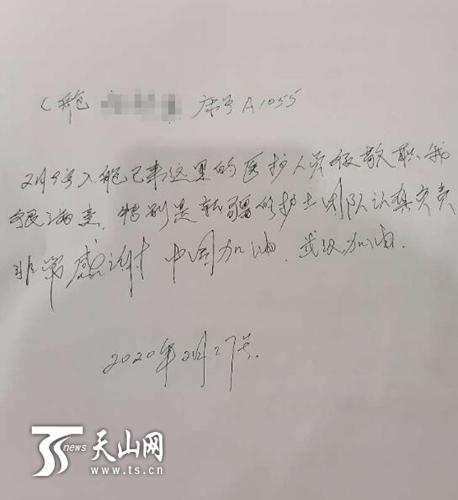 C舱 床号A1055
2月9号入舱已来这里的医护人员很敬职我
很满意.特别是新疆的护士团队认真负责
非常感谢 中国加油.武汉加油.
2020年2月27号.
TS news 天山网
www.ts.cn